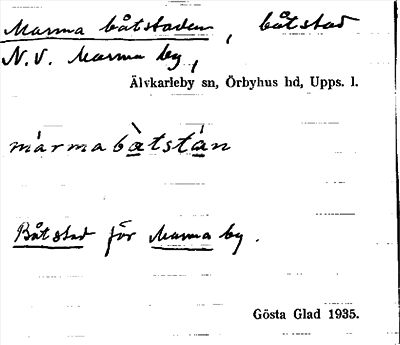 Marma båtstaden, båtstad
N.V. Marma by,
Älvkarleby sn, Örbyhus hd, Upps. l.
màrmabàtstán
Båtstad för Marma by.
Gösta Glad 1935.